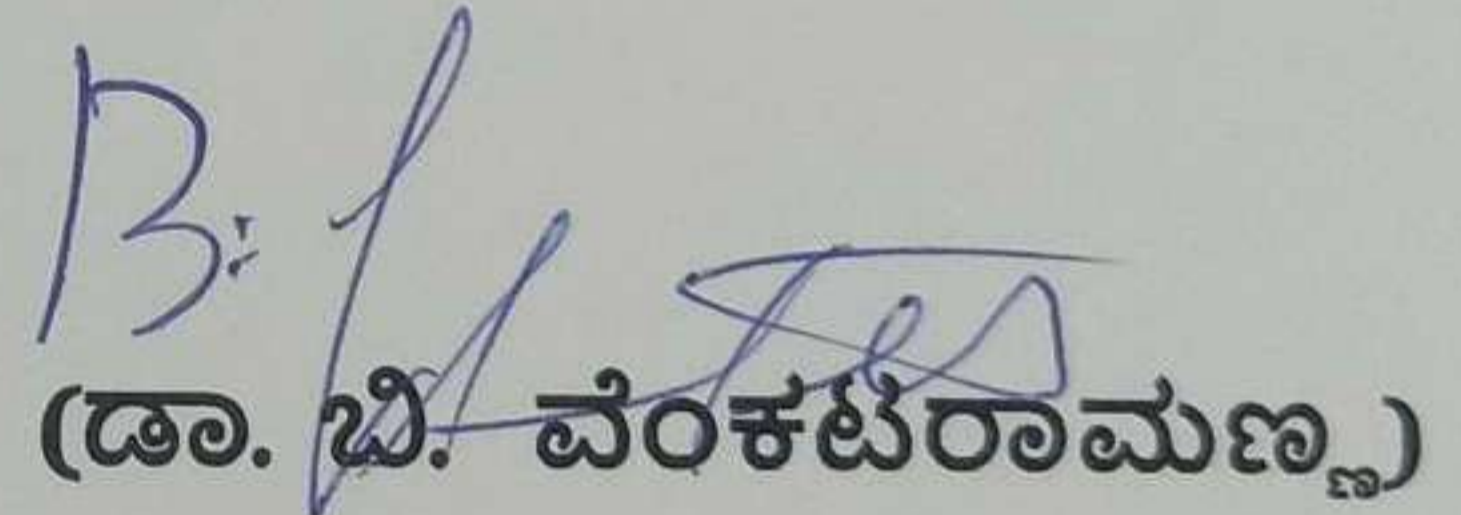 (ಡಾ. ಬಿ. ವೆಂಕಟರಾಮಣ್ಣ)